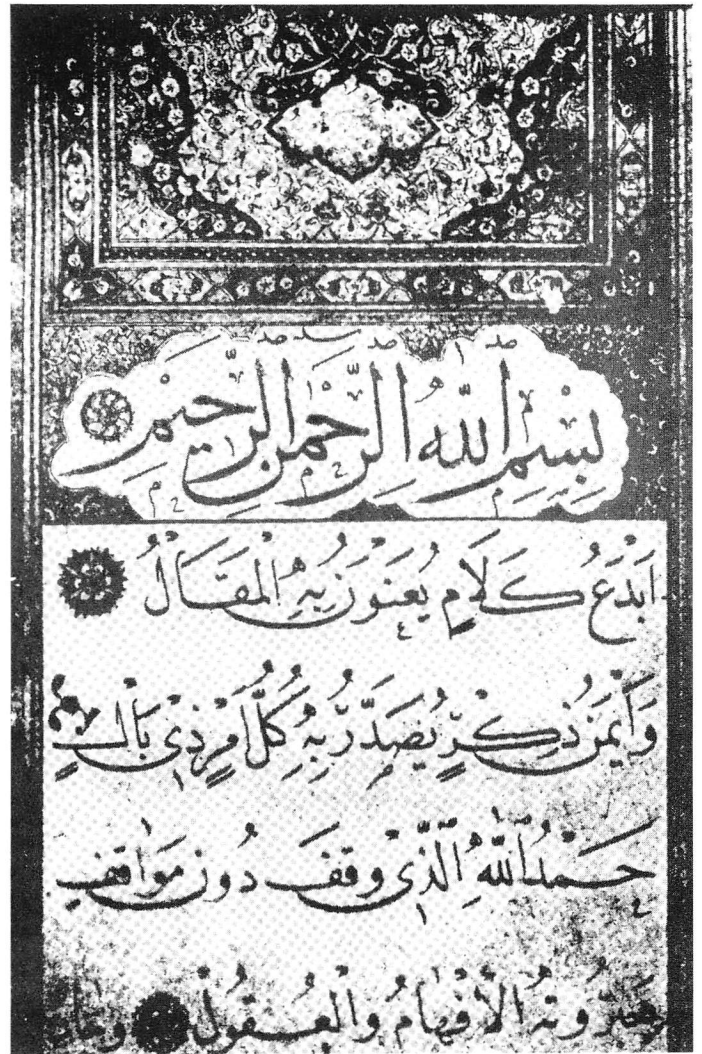 بِسْمِ اللّٰهِ الرَّحْمٰنِ الرَّحِيْمِ
اَبْدَعُ كَلَامٍ يُعَنْوَنُ بِهِ الْمَقَالُ
وَاَيْمَنُ ذِكْرٍ يُصَدَّرُ بِهِ كُلُّ اَمْرٍ ذِيْ بَالٍ
حَمْدُ اللّٰهِ الَّذِيْ وَقَفَ دُونَ مَوَاقِفِ
جَبَرُوتِهِ الْاَفْهَامُ وَالْعُقُولُ